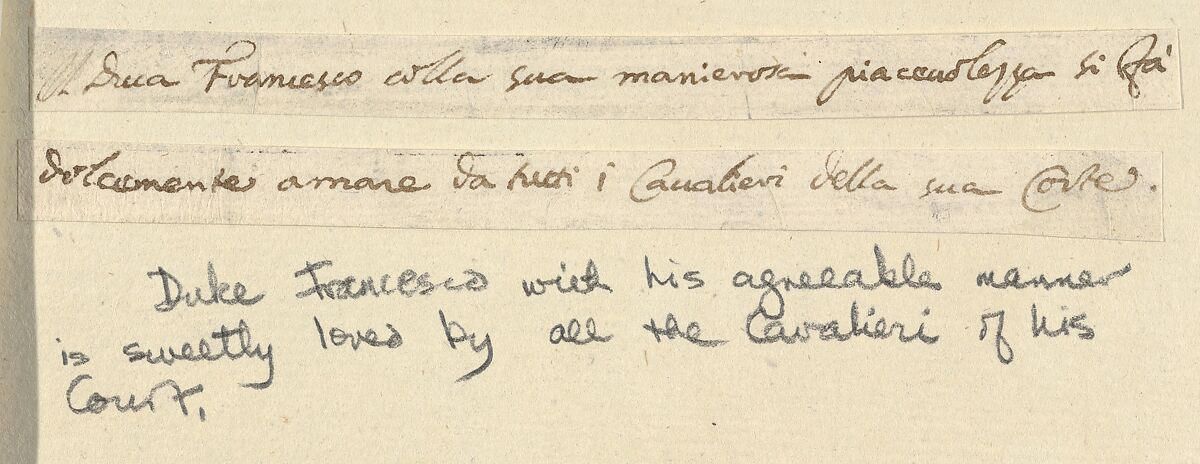 Il Duca Francesco colla sua manierosa piacevolezza si fá
dolcemente amare da tutti i Cavalieri della sua Corte.
Duke Francesco with his agreeable manner
is sweetly loved by all the Cavalieri of his
Court.